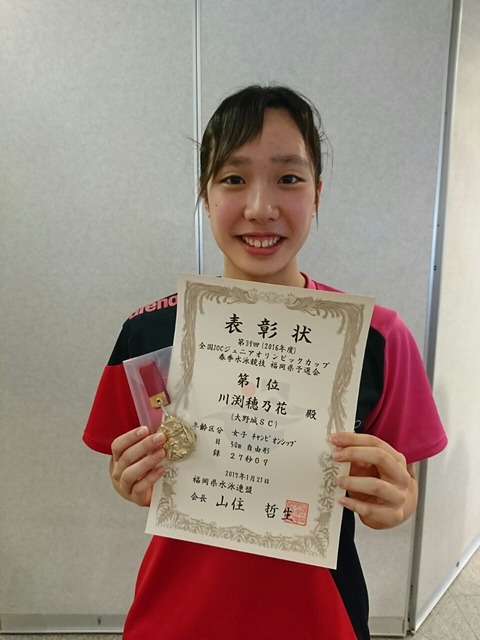 arena
表彰状
第39回(2016年度)
全国JOCジュニアオリンピックカップ
春季水泳競技 福岡県予選会
第1位
川渕穂乃花 殿
(大野城SC)
年齢区分 女子 チャンピオンシップ
目 50m 自由形
録 27秒09
2017年1月21日
福岡県水泳連盟
会長 山住 哲生